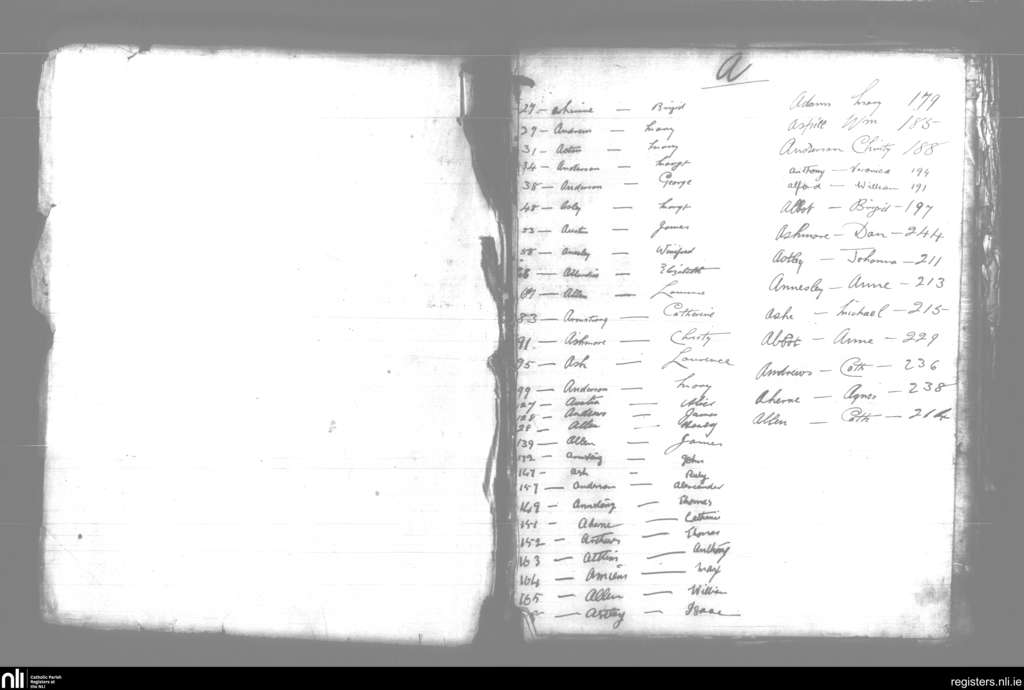 A
27 — Ashmore — Brigid
29 — Andrews — Mary
31 — Acton — Mary
34 — Anderson — Margt
38 — Anderson — George
48 — Astly — Margt
53 — Austin — James
58 — Annesley — Winifred
68 — — Elizabeth
69 — Allen — Laurence
83 — Armstrong — Catherine
91 — Ashmore — Christy
95 — Ash — Lawrence
99 — Anderson — Mary
127 — Austin —
128 — Andrews — James
28 — Allen —
139 — Allen — James
142 — Armstrong — John
147 — Ash — Ruby
157 — Anderson — Alexander
149 — Armstrong — Thomas
151 — Aherne — Catherine
152 — Arthurs — Thomas
163 — Atkins — Anthony
164 — — Max
165 — Allen — William
— Astley — Isaac
Adams Mary 179
Aspill Wm 185
Anderson Christy 188
Anthony — Veronica 194
Alford — William 191
Abbot — Brigid — 197
Ashmore — Dan — 244
Astley — Johanna — 211
Annesley — Anne — 213
Ashe — Michael — 215
Abbot — Anne — 229
Andrews — Cath — 236
Aherne — Agnes — 238
Allen — Cath — 214
nli
Catholic Parish
Registers at
the NLI
registers.nli.ie